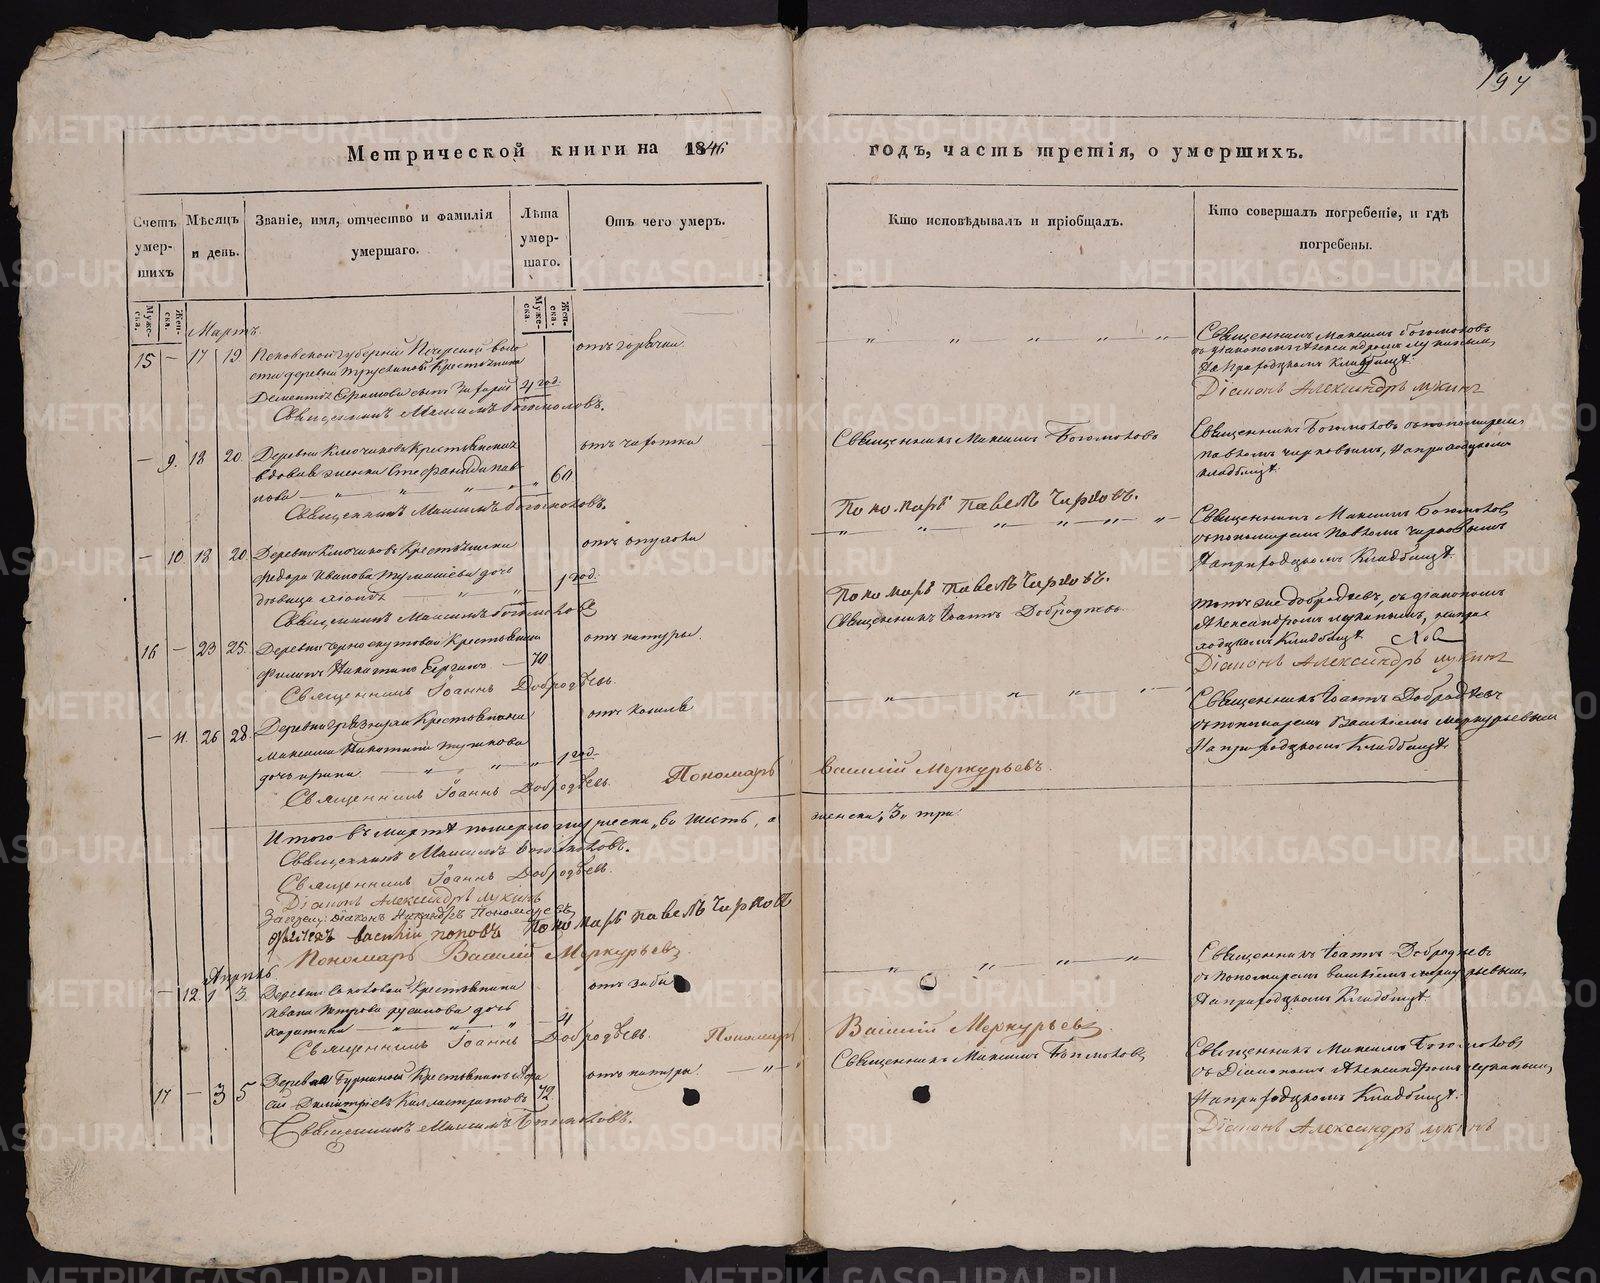 197
Метрической книги на 1846 годъ, часть третія, о умершихъ.
Счетъ умер-шихъ
Муже-ска. Жен-ска.
Мѣсяцъ и день.
Званіе, имя, отчество и фамилія умершаго.
Лѣта умер-шаго.
Муже-ска. Жен-ска.
Отъ чего умеръ.
Кто исповѣдывалъ и пріобщалъ.
Кто совершалъ погребеніе, и гдѣ погребены.
Мартъ
15 — 17 19
Псковской губерніи
деревни Крестьянина
сынъ 4 год.
Священникъ Максимъ Богомоловъ.
отъ горячки
Священникъ Максимъ Богомоловъ
съ діакономъ Александромъ Лукинымъ,
На приходскомъ Кладбищѣ.
Діаконъ Александръ Лукинъ
— 9. 18 20.
Деревни Крестьянская
вдова 60
Священникъ Максимъ Богомоловъ.
отъ чахотки
Священникъ Максимъ Богомоловъ
Пономарь Павелъ Чирковъ.
Священникъ Богомоловъ съ пономаремъ
Павломъ Чирковымъ, На приходскомъ
кладбищѣ.
— 10. 18 20.
Деревни Крестьянина
Федора Иванова дочь
дѣвица 1 год.
Священникъ Максимъ Богомоловъ
отъ опухоли
Пономарь Павелъ Чирковъ.
Священникъ Максимъ Богомоловъ
съ пономаремъ Павломъ Чирковымъ
На приходскомъ Кладбищѣ.
16 — 23 25.
Деревни Крестьянинъ
Филипъ Никитинъ 70
Священникъ Іоаннъ Добродѣевъ.
отъ натуры.
Священникъ Іоаннъ Добродѣевъ
Тотъ же Добродѣевъ, съ діакономъ
Александромъ Лукинымъ, на при-
ходскомъ Кладбищѣ.
Діаконъ Александръ Лукинъ
— 11. 26 28.
Деревни Крестьянина
Никитина
дочь Ирина 1 год.
Священникъ Іоаннъ Добродѣевъ.
отъ кашля
Пономарь Василій Меркурьевъ.
Священникъ Іоаннъ Добродѣевъ
съ пономаремъ Василіемъ Меркурьевымъ
На приходскомъ Кладбищѣ.
Итого въ Мартѣ померло мужеска шесть, а женска 3. три.
Священникъ Максимъ Богомоловъ.
Священникъ Іоаннъ Добродѣевъ.
Діаконъ Александръ Лукинъ
діаконъ Никандръ Пономаревъ
Василій Поповъ Пономарь Павелъ Чирковъ
Пономарь Василій Меркурьевъ
Апрель
— 12. 1 3.
Деревни Крестьянина
Ивана Петрова дочь
4
Священникъ Іоаннъ Добродѣевъ.
Пономарь Василій Меркурьевъ.
Священникъ Іоаннъ Добродѣевъ
съ пономаремъ Василіемъ Меркурьевымъ,
На приходскомъ Кладбищѣ.
17 — 3 5
Деревни Крестьянинъ
72
Священникъ Максимъ Богомоловъ.
отъ натуры
Священникъ Максимъ Богомоловъ
Священникъ Максимъ Богомоловъ
съ Діакономъ Александромъ Лукинымъ,
На приходскомъ Кладбищѣ.
Діаконъ Александръ Лукинъ
METRIKI.GASO-URAL.RU